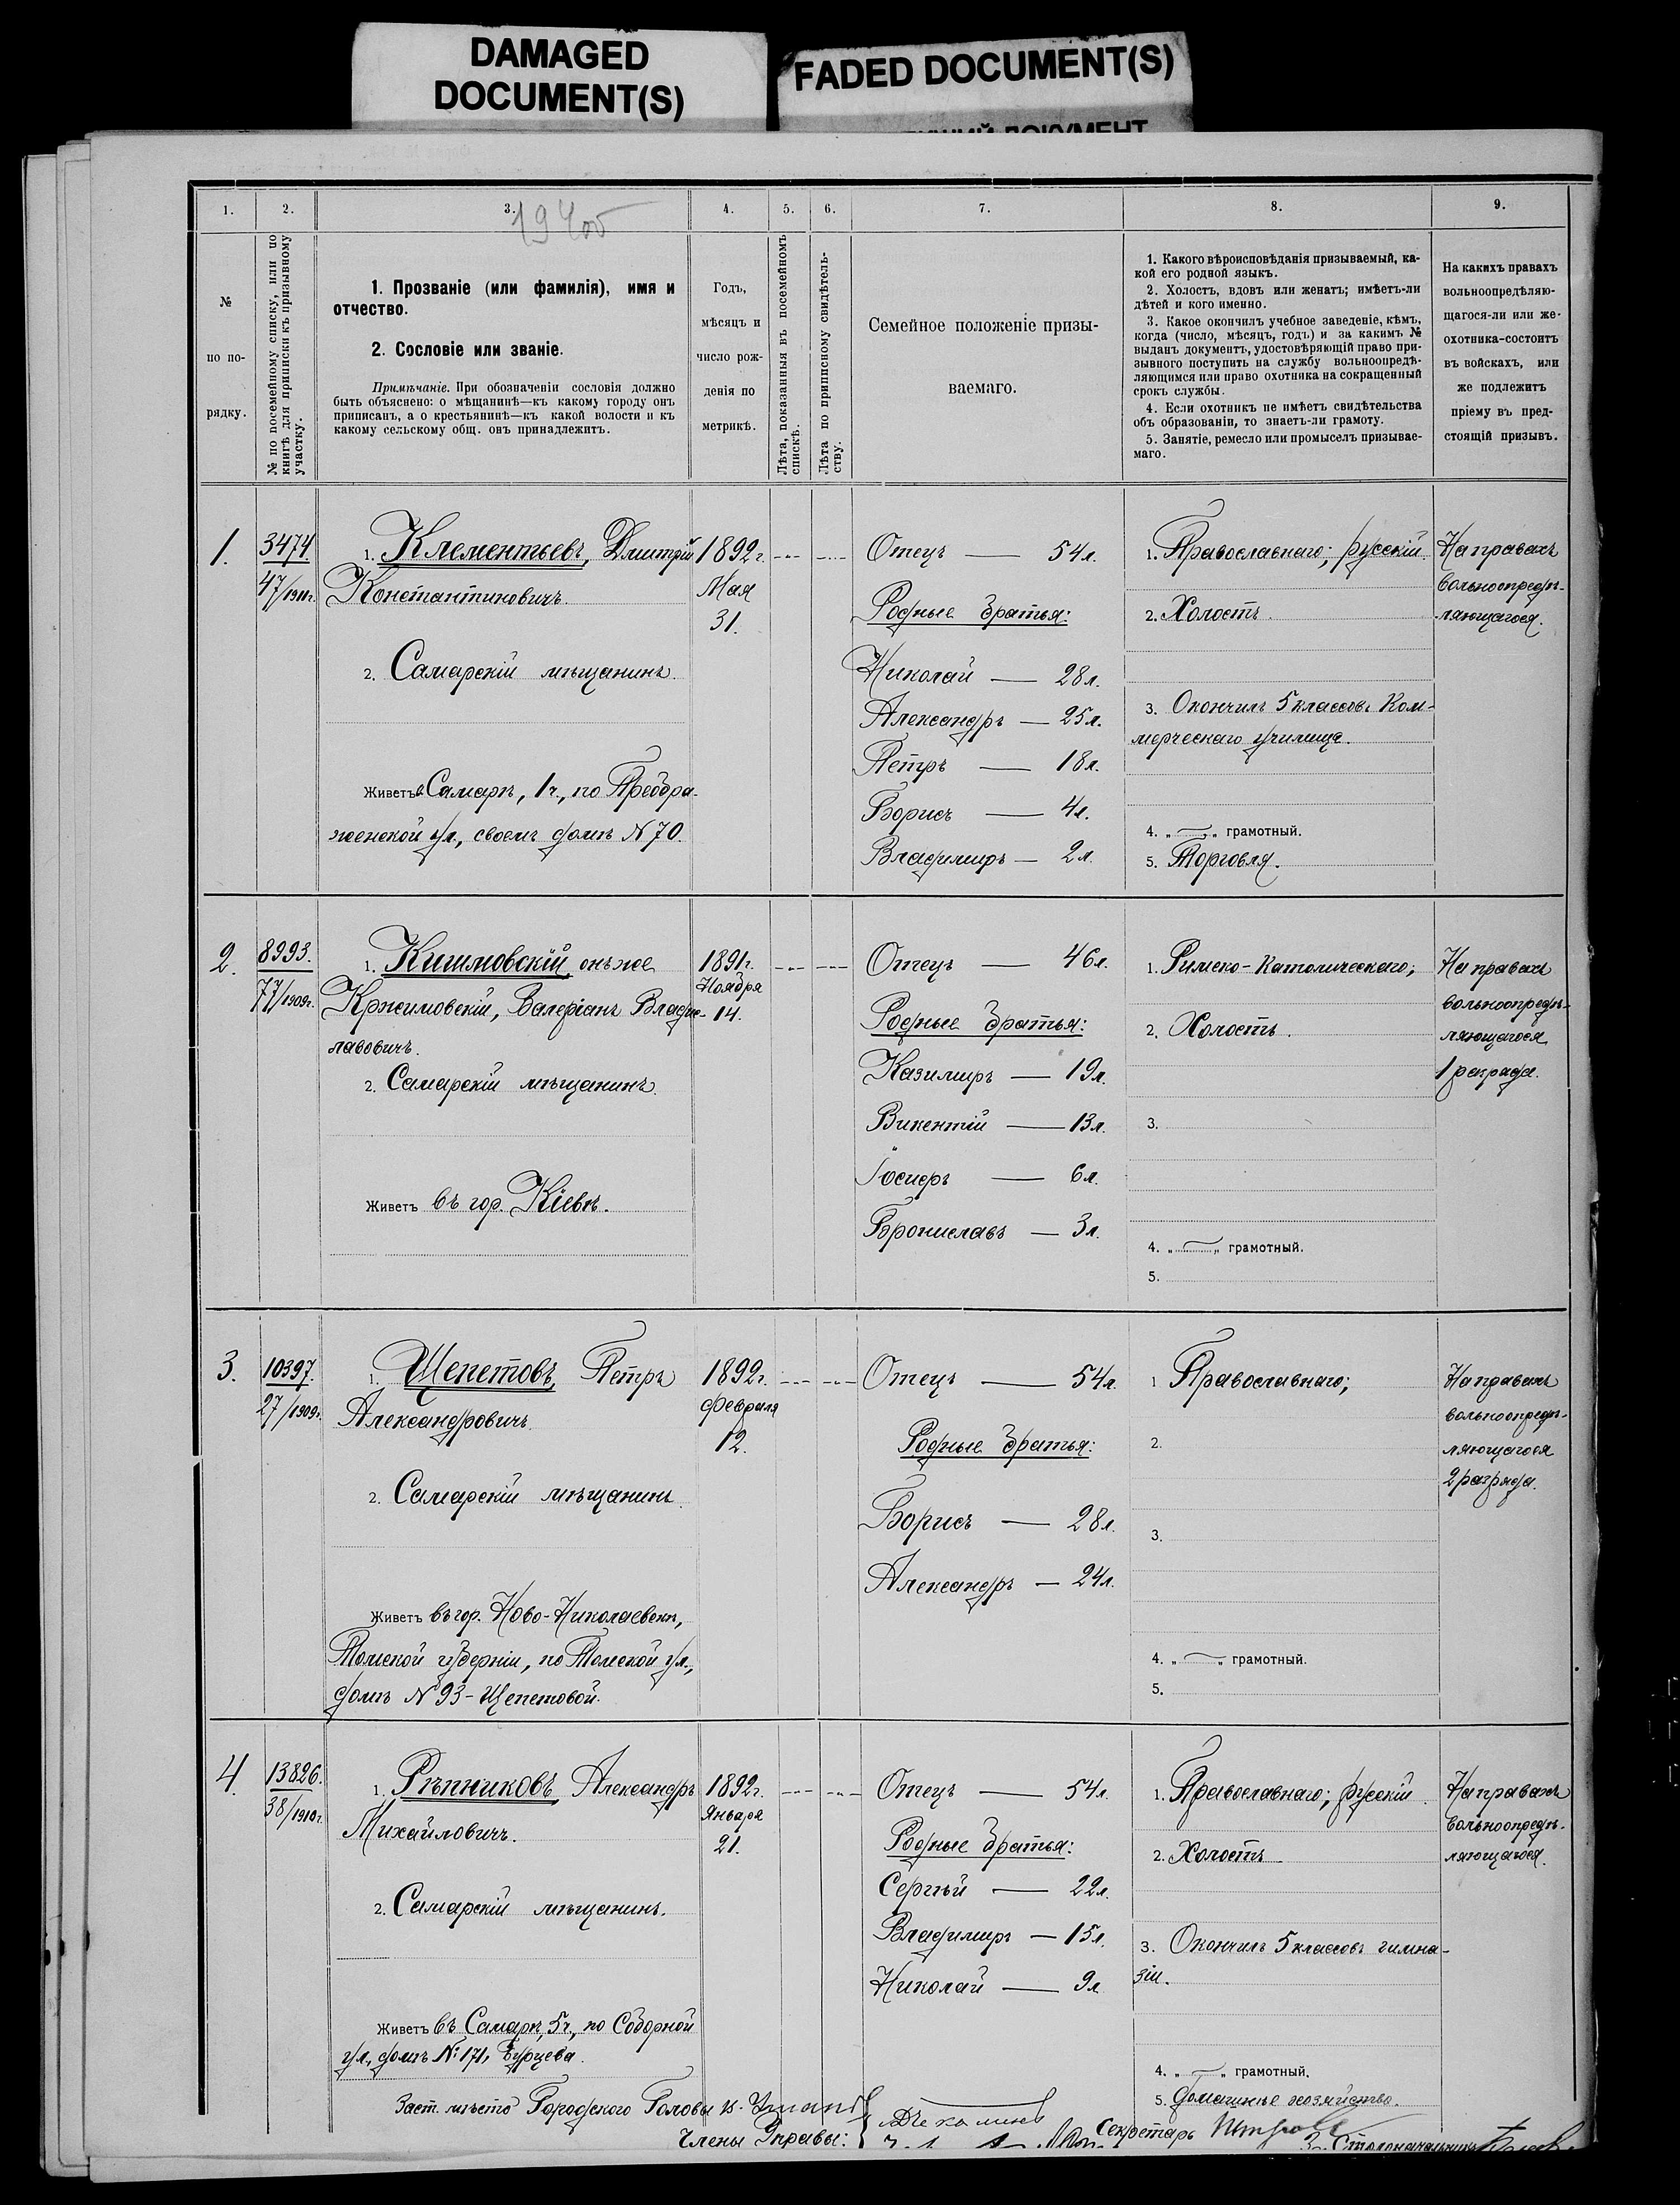 DAMAGED
DOCUMENT(S)
FADED DOCUMENT(S)
1. 2. 3. 4. 5. 6. 7. 8. 9.
№
по по-
рядку.
№ по посемейному списку, или по
книгѣ для приписки къ призывному
участку.
1. Прозваніе (или фамилія), имя и
отчество.
2. Сословіе или званіе.
Примѣчаніе. При обозначеніи сословія должно
быть объяснено: о мѣщанинѣ—къ какому городу онъ
приписанъ, а о крестьянинѣ—къ какой волости и къ
какому сельскому общ. онъ принадлежитъ.
Годъ,
мѣсяцъ и
число рож-
денія по
метрикѣ.
Лѣта, показанныя въ посемейномъ
спискѣ.
Лѣта по приписному свидѣтель-
ству.
Семейное положеніе призы-
ваемаго.
1. Какого вѣроисповѣданія призываемый, ка-
кой его родной языкъ.
2. Холостъ, вдовъ или женатъ; имѣетъ-ли
дѣтей и кого именно.
3. Какое окончилъ учебное заведеніе, кѣмъ,
когда (число, мѣсяцъ, годъ) и за какимъ №
выданъ документъ, удостовѣряющій право при-
зывного поступить на службу вольноопредѣ-
ляющимся или право охотника на сокращенный
срокъ службы.
4. Если охотникъ не имѣетъ свидѣтельства
объ образованіи, то знаетъ-ли грамоту.
5. Занятіе, ремесло или промыселъ призывае-
маго.
На какихъ правахъ
вольноопредѣляю-
щагося-ли или же-
охотника-состоитъ
въ войскахъ, или
же подлежитъ
пріему въ пред-
стоящій призывъ.
1.
3474.
47/1911г.
1. Клементьевъ, Дмитрій
Константиновичъ.
2. Самарскій мѣщанинъ.
Живетъ в Самарѣ, 1ч., по Преобра-
женской ул., своемъ домѣ N 70.
1892г.
Мая
31.
Отецъ — 54л.
Родные братья:
Николай — 28л.
Александръ — 25л.
Петръ — 18л.
Борисъ — 4л.
Владимиръ — 2л.
1. Православнаго; русскій.
2. Холостъ.
3. Окончилъ 5 классовъ Ком-
мерческаго училища.
4. „ „ грамотный.
5. Торговля.
На правахъ
вольноопредѣ-
ляющагося.
2.
8993.
77/1909г.
1. Кишмовскій, онъ же
Кржимовскій, Валеріанъ Влади-
лавовичъ.
2. Самарскій мѣщанинъ.
Живетъ въ гор. Кіевѣ.
1891г.
Ноября
14.
Отецъ — 46л.
Родные братья:
Казимиръ — 19л.
Викентій — 13л.
Іосифъ — 6л.
Брониславъ — 3л.
1. Римско-Католическаго;
2. Холостъ.
3.
4. „ „ грамотный.
5.
На правахъ
вольноопредѣ-
ляющагося
1 разряда.
3.
10397.
27/1909г.
1. Щепетовъ, Петръ
Александровичъ
2. Самарскій мѣщанинъ.
Живетъ въ гор. Ново-Николаевскѣ,
Томской губерніи, по Томской ул.,
домъ N 93-Щепетовой.
1892г.
Февраля
12.
Отецъ — 54л.
Родные братья:
Борисъ — 28л.
Александръ — 24л.
1 Православнаго;
2.
3.
4. „ „ грамотный.
5.
На правахъ
вольноопредѣ-
ляющагося
2 разряда.
4.
13826.
38/1910г.
1. Рѣпниковъ, Александръ
Михайловичъ.
2. Самарскій мѣщанинъ.
Живетъ въ Самарѣ, 5ч., по Соборной
ул., домъ №171, Бурцева.
1892г.
Января
21.
Отецъ — 54л.
Родные братья:
Сергѣй — 22л.
Владимиръ — 15л.
Николай — 9л.
1. Православнаго; русскій.
2. Холостъ
3. Окончилъ 5 классовъ гимна-
зіи.
4. „ „ грамотный.
5. Домашнее хозяйство.
На правахъ
вольноопредѣ-
ляющагося.
Заст. мѣсто Городского Головы
Члены Управы:
Секретарь
Столоначальникъ